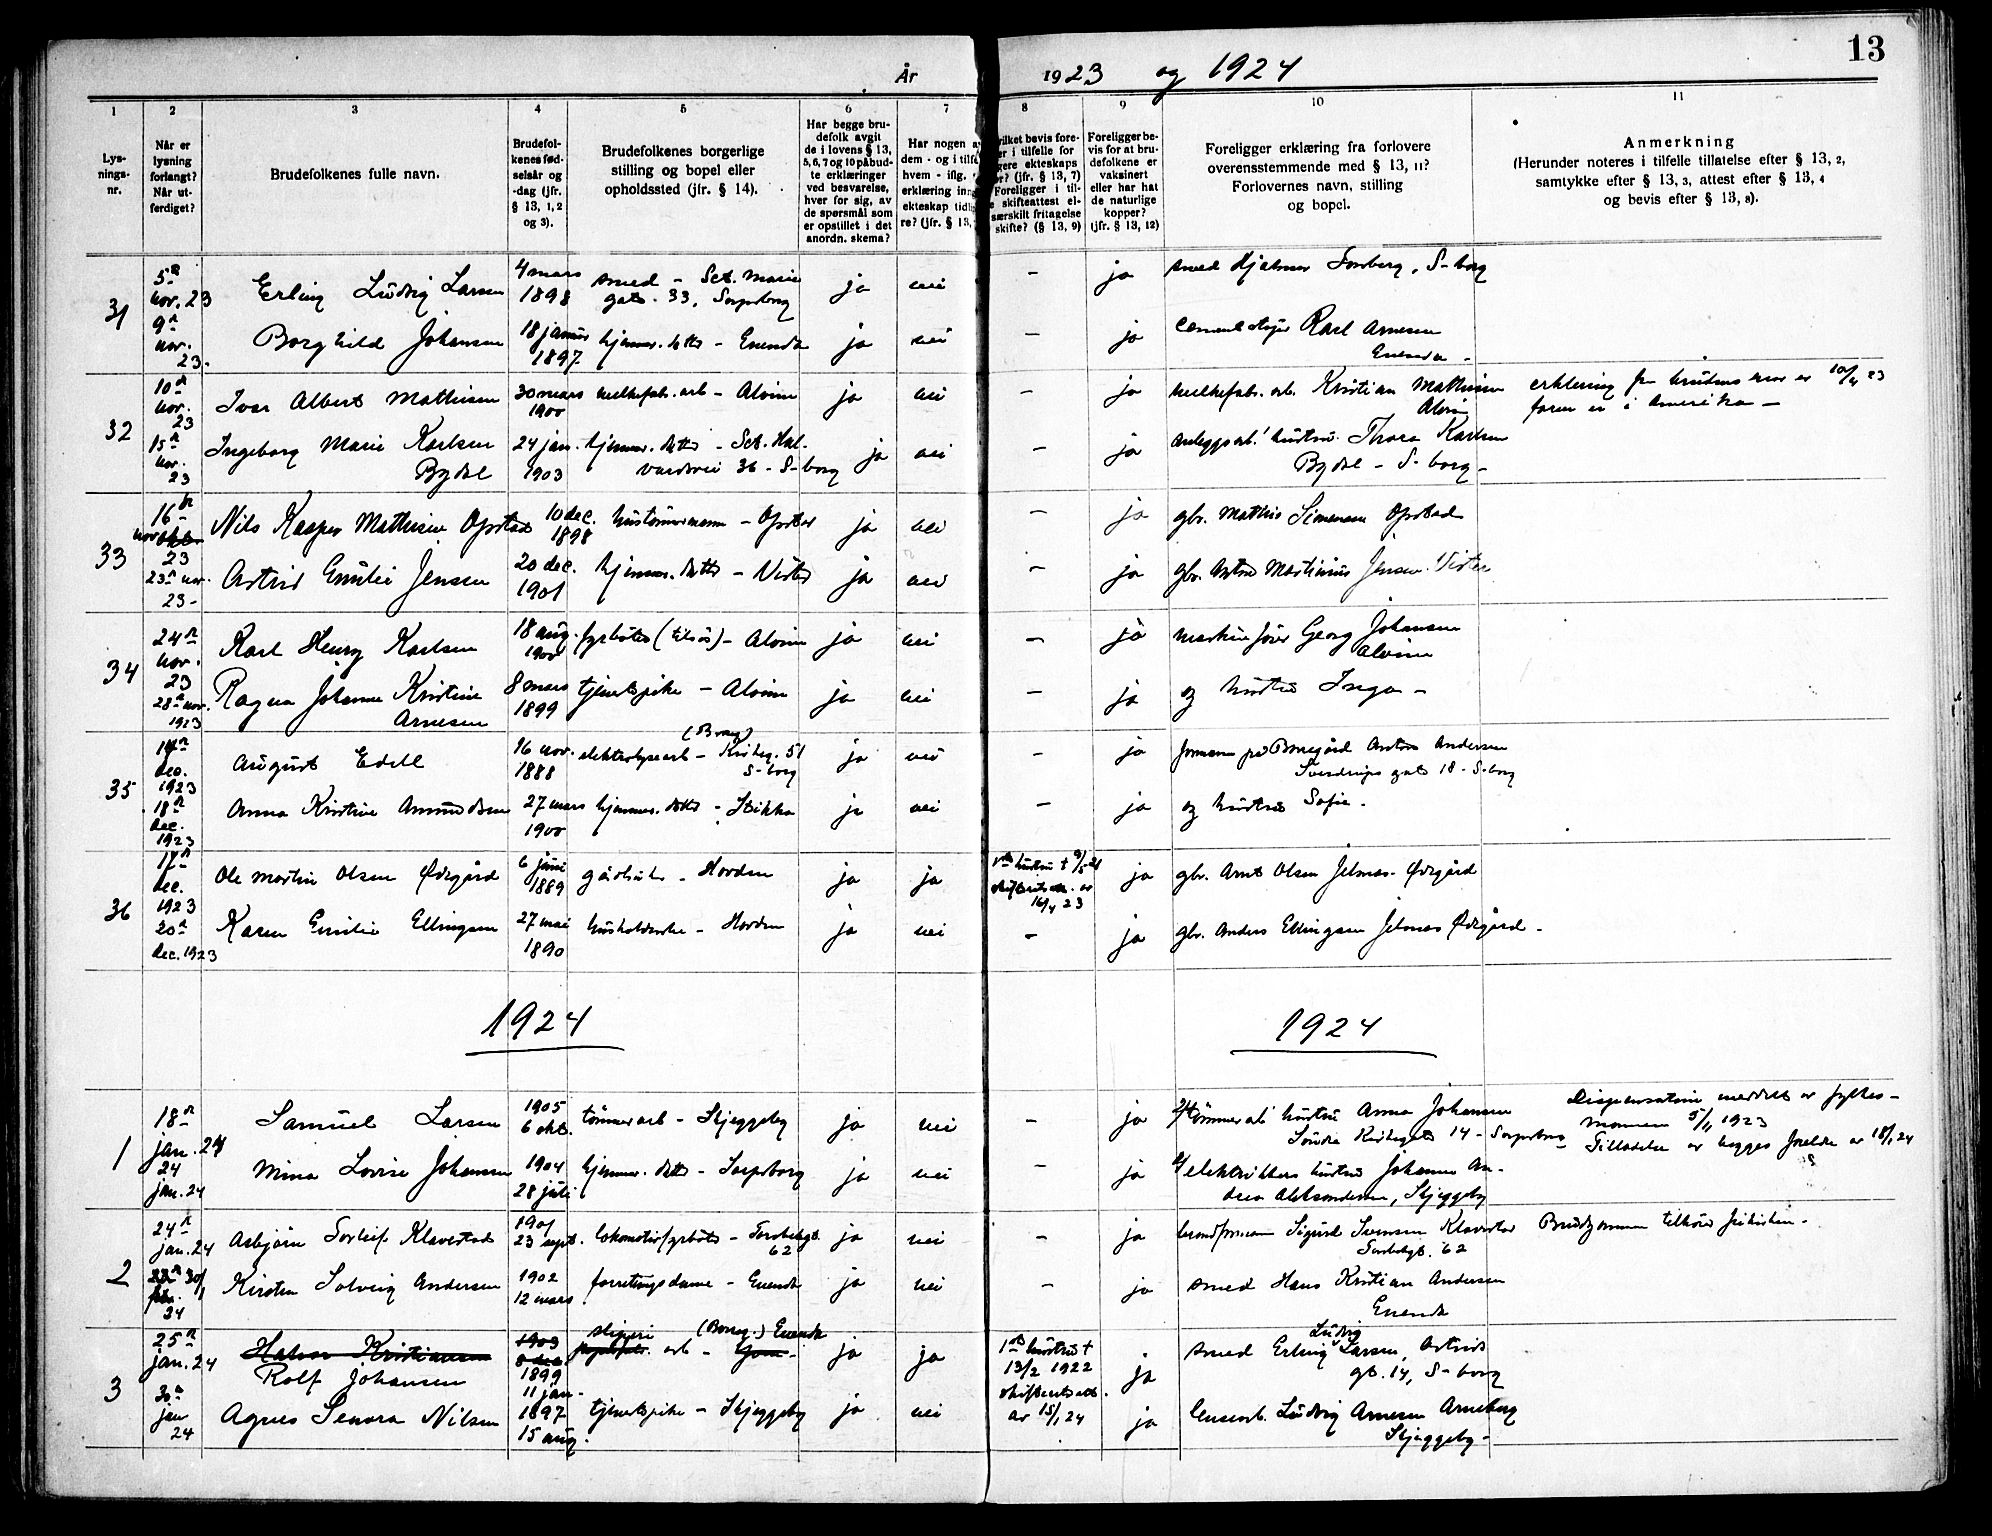 13
År 1923 og 1924
1 2 3 4 5 6 7 8 9 10 11
Lys-
nings-
nr.
Når er
lysning
forlangt?
Når ut-
ferdiget?
Brudefolkenes fulle navn.
Brudefol-
kenes fød-
selsår og
-dag (jfr.
§ 13, 1, 2
og 3).
Brudefolkenes borgerlige
stilling og bopel eller
opholdssted (jfr. § 14).
Har begge bru-
defolk avgit
de i lovens § 13,
5, 6, 7 og 10 påbud-
te erklæringer
ved besvarelse,
hver for sig, av
de spørsmål som
er opstillet i det
anordn. skema?
Har nogen a
dem - og i tilf
hvem - iflg.
erklæring inn
ekteskap tidli
re? (jfr. § 13,
ilket bevis fore-
er i tilfelle for
gere ekteskaps
r? (jfr. § 13, 7)
Foreligger i til-
e skifteattest el-
særskilt fritagelse
skifte? (§ 13, 9)
Foreligger be-
vis for at bru-
defolkene er
vaksinert
eller har hat
de naturlige
kopper?
(jfr. § 13, 12)
Foreligger erklæring fra forlovere
overensstemmende med § 13, 11?
Forlovernes navn, stilling
og bopel.
Anmerkning
(Herunder noteres i tilfelle tillatelse efter § 13, 2,
samtykke efter § 13, 3, attest efter § 13, 4
og bevis efter § 13, 8).
31
5
nov. 23
Erling Ludvig Larsen
4 mars
1898
smed – Sct. Marie
gate 33, Sarpsborg
ja nei – ja
smed Hjalmar, S-borg
9
nov.
23.
Borghild Johansen
18 januar
1897
hjemmev. datter – Enendа
ja nei – ja
Karl Arnesen
32
10
nov.
23
Ivar Albert Mathisen
30 mars
1900
arb – Alvim
ja nei – ja
Kristian Mathisen
Alvim
faren er i Amerika –
15
nov.
23
Ingeborg Marie Karlsen
Bydal
24 jan.
1903
hjemmev. datter – Sct. Hal-
vardsvei 36 – S-borg
ja nei – ja
hustru Thora Karlsen
Bydal – S-borg –
33
16
nov
23
Nils Kasper Mathisen Opstad
10 dec.
1898
– Opstad
ja nei – ja
gbr. Mathis Simensen Opstad
23 nov.
23 –
Astrid Emilie Jensen
20 dec.
1901
hjemmev. datter – Vister
ja nei – ja
gbr. Anton Martinius Jensen Vister
34
24
nov.
23
Karl Henry Karlsen
18 aug.
1900
fyrbøter – Alvim
ja nei – ja
Georg Johansen
Alvim
28 nov.
1923
Ragna Johanne Kristine
Arnesen
8 mars
1899
tjenestpike – Alvim
ja nei – ja
og hustru Inga –
35
14
dec.
1923
August Edell
16 nov.
1888
elektrolysearb – (Borreg) Kirkeg. 51
S-borg
ja nei – ja
formann på Borregård Anton Andersen
Sverdrups gate 18 – S-borg
18
dec.
1923
Anna Kristine Amundsen
27 mars
1900
hjemmev. datter – Stikka
ja nei – ja
og hustru Sofie –
36
17
dec.
1923
Ole Martin Olsen Ødegård
6 juni
1889
gårdbruker – Hovden
ja ja
1ste hustru †
skifteattest av
16/4 23
ja
gbr. Arnt Olsen Jelsnes Ødegård
20
dec. 1923
Karen Emilie Ellingsen
27 mai
1890
husholderske – Hovden
ja nei – ja
gbr. Anders Ellingsen Jelsnes Ødegård –
1924 1924
1
18
jan. 24
Samuel Larsen
1905
6 okt.
tømmerarb – Skjeggeby
ja nei – ja
hustru Anna Johansen
Søndre Kirkegate 14 – Sarpsborg
Dispensation meddelt av fylkes-
mannen 5/1 1923
Tilladelse av begges foreldre av 18/1 24
24
jan. 24
Mina Lovise Johansen
1904
28 juli
hjemmev. datter – Sarpsborg
ja nei – ja
elektrikers hustru Johanne An-
drea Aleksandersen, Skjeggeby
2
24
jan. 24
Asbjørn Torleif Klavestad
1901
23 sept.
lokomotivfyrbøter – Torsbekgt.
62
ja nei – ja
brandformann Sigurd Svensen Klavestad
Torsbekgt. 62
Brudgommen tilhører frikirken –
30/1
24
Kirsten Solveig Andersen
1902
12 mars
forretningsdame – Enenda
ja nei – ja
smed Hans Kristian Andersen
3
25
jan. 24
Halvor Kristiansen
Rolf Johansen
1903
8 dec.
1899
11 jan.
sliperi (Borreg.)
arb –
ja ja
1ste hustru †
13/2 1922
skifteattest
av 15/1 24
ja
smed Erling Ludvig Larsen, Astrids
gt. 14, S-borg
30
jan
24
Agnes Senora Nilsen
1897
15 aug.
tjenestpike – Skjeggeby
ja nei ja
Ludvig Arnesen Arneberg
Skjeggeby –